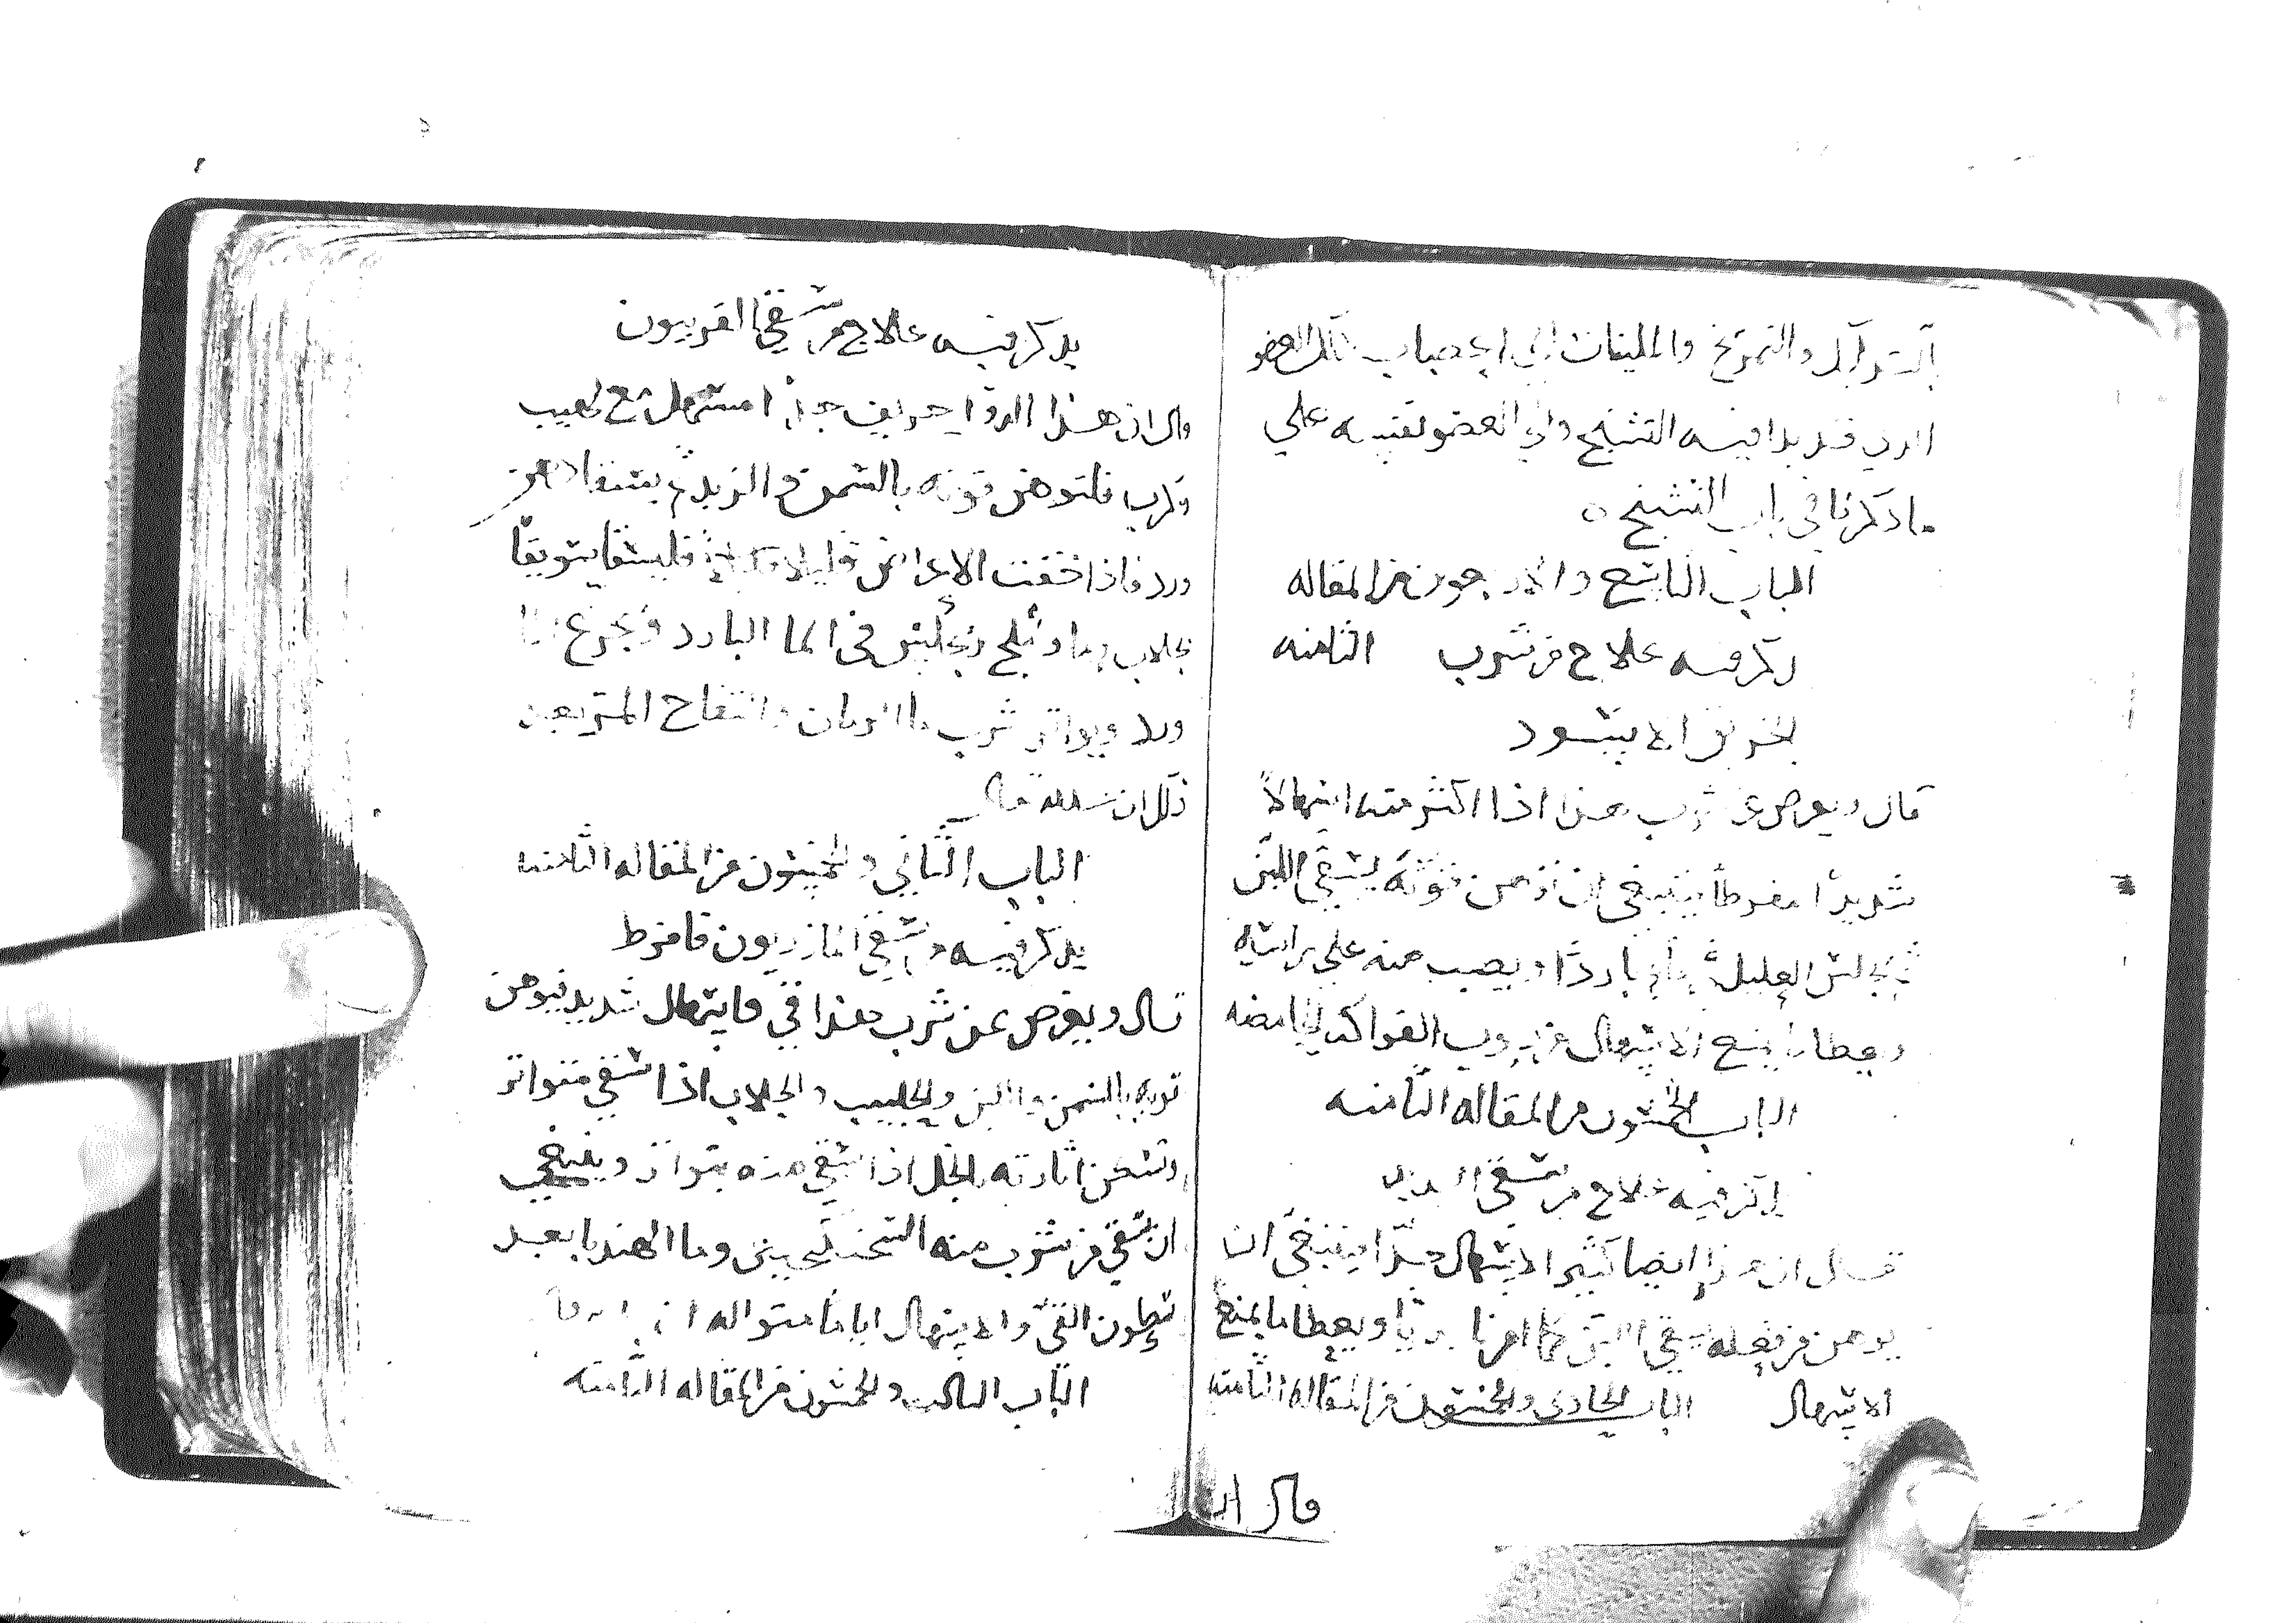 والتمريخ والملينات الي اعصاب ذلك العضو
الدي قد بدا فيه التشنج والي العضو نفسه علي
ما ذكرنا في باب التشنج ه
الباب التاسع والاربعون من المقاله
يذكر فيه علاج من شرب الثامنه
الخربق الاسود
قال ويعرض عن شرب هذا اذا اكثر منه اسهالاً
شديدًا مفرطاً فينبغي ان توهن قوته بسقي اللبن
ثم يجلس العليل في ماء باردًا ويصب منه علي راسه
ويعطا ما يمنع الاسهال من ربوب الفواكه الحامضه
الباب الخمسون من المقاله الثامنه
يذكر فيه علاج من سقي
قال ان هذا ايضا كثير الاسهال جدًا فينبغي ان
يوهن من فعله بسقي اللبن كما امرنا ويعطا ما يمنع
الاسهال الباب الحادي والخمسون من المقاله الثامنه
قال ان
يدكر فيه علاج من سقي الفربيون
قال ان هذا الدوا حريف جدًا مسهل مع لهيب
وكرب فلتوهن قوته بالسمن والزبد ثم يسقا دهن
ورد فاذا خفت الاعراض قليلا فليسقا سويقًا
بجلاب وماء وثلج ويجلس في الما البارد ويجرع ماء
ورد ويواتر شرب ما الرمان والتفاح المز بعد
ذلك ان شا الله تعالي
الباب الثاني والخمسون من المقاله الثامنه
يدكر فيه من سقي المازريون فافرط
قال ويعرض عن شرب هذا قي واسهال شديد فيوهن
قوته بالسمن واللبن والحليب والجلاب اذا سقي متواتر
وتسكن اثارته بالخل اذا سقي منه بتواتر وينبغي
ان يسقي من شرب منه السكنجبين وما الهندبا بعد
سكون القي والاسهال اياما متواله
الباب الثالث والخمسون من المقاله الثامنه